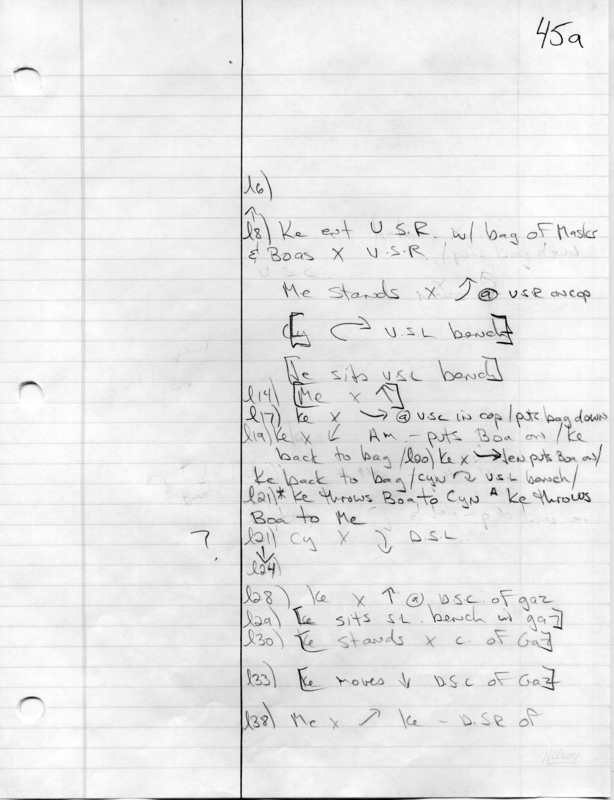 45a
l6)
↑
l8) Ke ent U.S.R. w/ bag of Masks
& Boas X U.S.R
Me Stands X ⤴ @ USR on cop
[Cy ↷ U.S.L bench]
sits USL bench]
l14) [Me X ↑]
l17) Ke X → @ USC in cop/puts bag down
l19) Ke X ↙ Am - puts Boa on / Ke
back to bag /l20) Ke X → len puts Boa on/
Ke back to bag/cyn ↷ USL bench/
l21)* Ke throws Boa to Cyn ^ Ke throws
Boa to Me
? l21) Cy X ⤵ D.S.L
↓
l24)
l28) Ke X ↑ @ DSC. of gaz
l29) [Ke sits SL bench w/ gaz]
l30) [Ke Stands X C. of Gaz]
l33) [Ke moves ↓ DSC of Gaz]
l38) Me X ↗ Ke - D.SR of